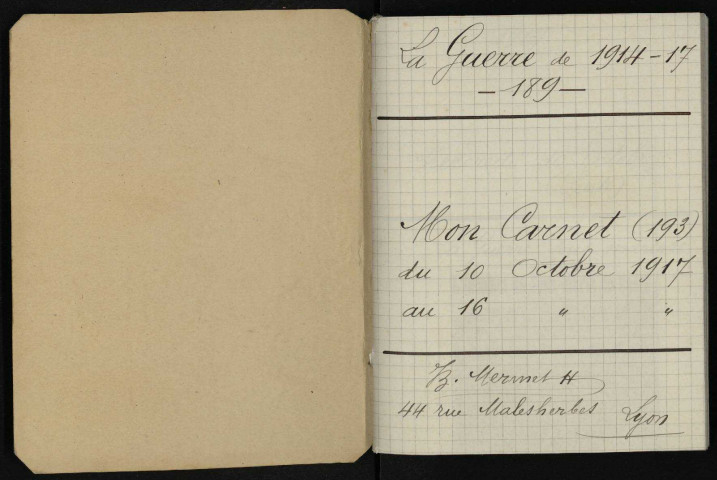 La Guerre de 1914-17
- 189 -
Mon Carnet (193)
du 10 Octobre 1917
au 16 " "
B. Mermet
44 rue Malesherbes Lyon